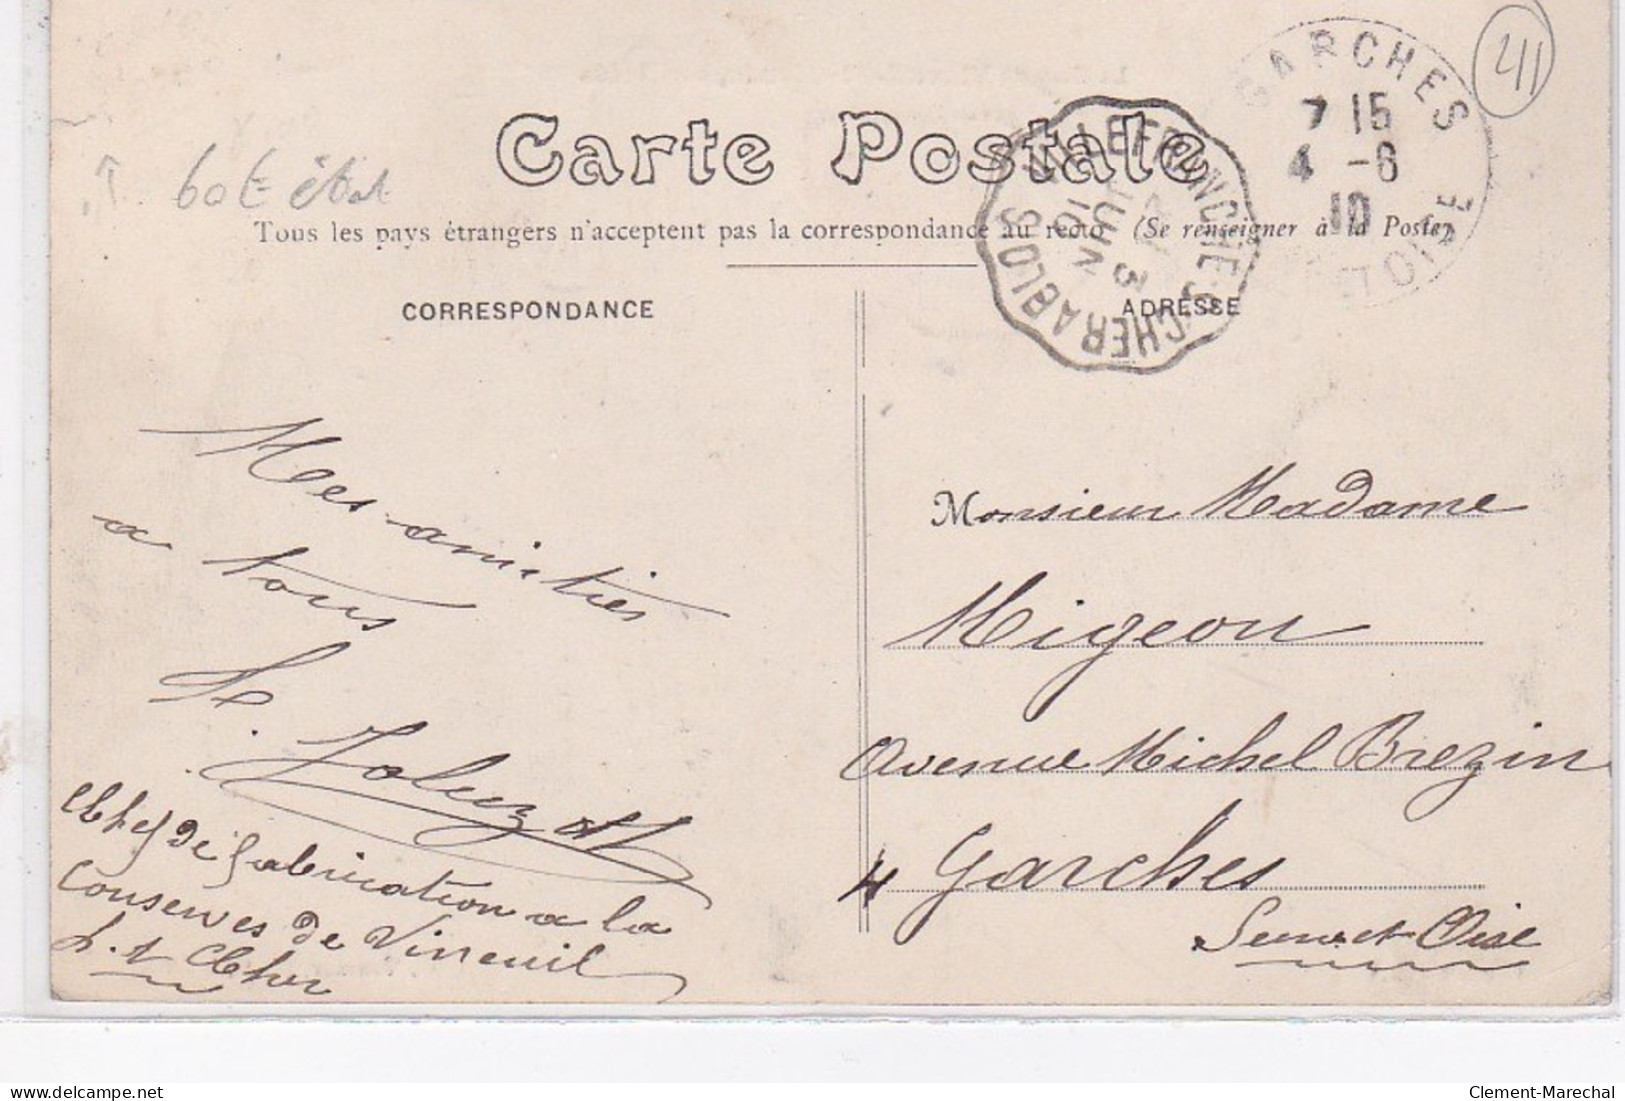 411
GARCHES
7 15
4 -6
10
SEINE ET OISE
Carte Postale
VILLEFRANCHE S CHER A BLOIS
3
JUIN
10
bot état
Tous les pays étrangers n'acceptent pas la correspondance au recto (Se renseigner à la Poste)
CORRESPONDANCE
ADRESSE
Mes amitiés
a tous
Chef de fabrication a la
Conserves de Vineuil
L. & Cher
Monsieur Madame
Migeon
Avenue Michel Brezin
4 Garches
Seine et Oise
Clement-Marechal
www.delcampe.net